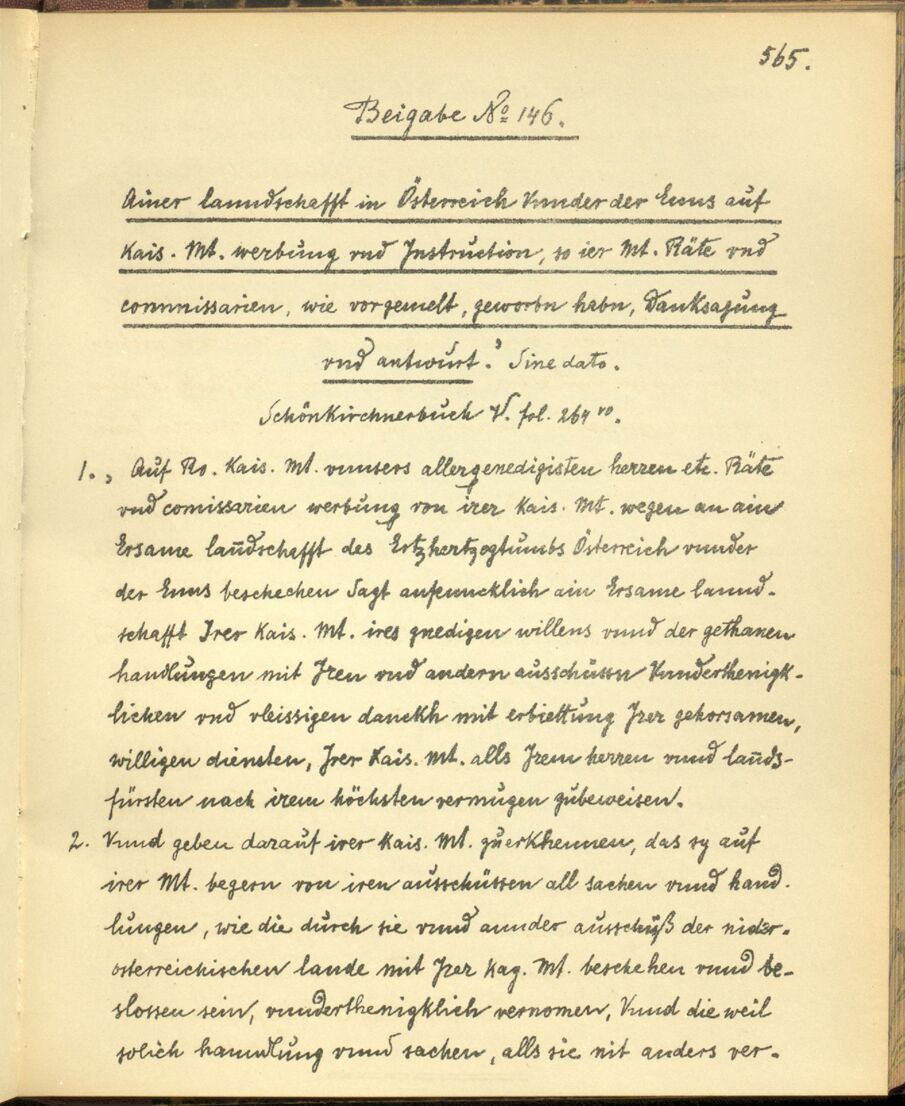 565.
Beigabe No 146.
Ainer lanndschafft in Österreich Vnnder der Enns auf
Kais. Mt. werbung vnd Instruction, so ier Mt. Räte vnd
commissarien, wie vorgemelt, geworbn habn, Danksagung
vnd antwurt. Sine dato.
Schönkirchnerbuch V. fol. 264 vo.
1. „ Auf Ro. Kais. Mt. vnnsers allergenedigisten herren etc. Räte
vnd comissarien werbung von irer Kais. Mt. wegen an ain
Ersame lanndschafft des Ertzhertzogtumbs Österreich vnnder
der Enns beschechen Sagt anfenncklich ain Ersame lannd-
schafft Irer Kais. Mt. ires gnedigen willens vnnd der gethanen
handlungen mit Iren vnd andern ausschüssn Vnnderthenigk-
lichen vnd vleissigen danckh mit erbiettung Irer gehorsamen,
willigen diensten, Irer Kais. Mt. alls Irem herren vnnd lannds-
fürsten nach irem höchsten vermugen zubeweisen.
2. Vnnd geben darauf irer Kais. Mt. zuerkhennen, das sy auf
irer Mt. begern von iren ausschüssen all sachen vnnd hand-
lungen, wie die durch sie vnnd annder ausschüß der nider-
österreichischen lande mit Irer Kay. Mt. beschehen vnnd be-
slossen sein, vnnderthenigklich vernomen, Vnnd die weil
solich hanndlung vnnd sachen, alls sie nit anders ver-